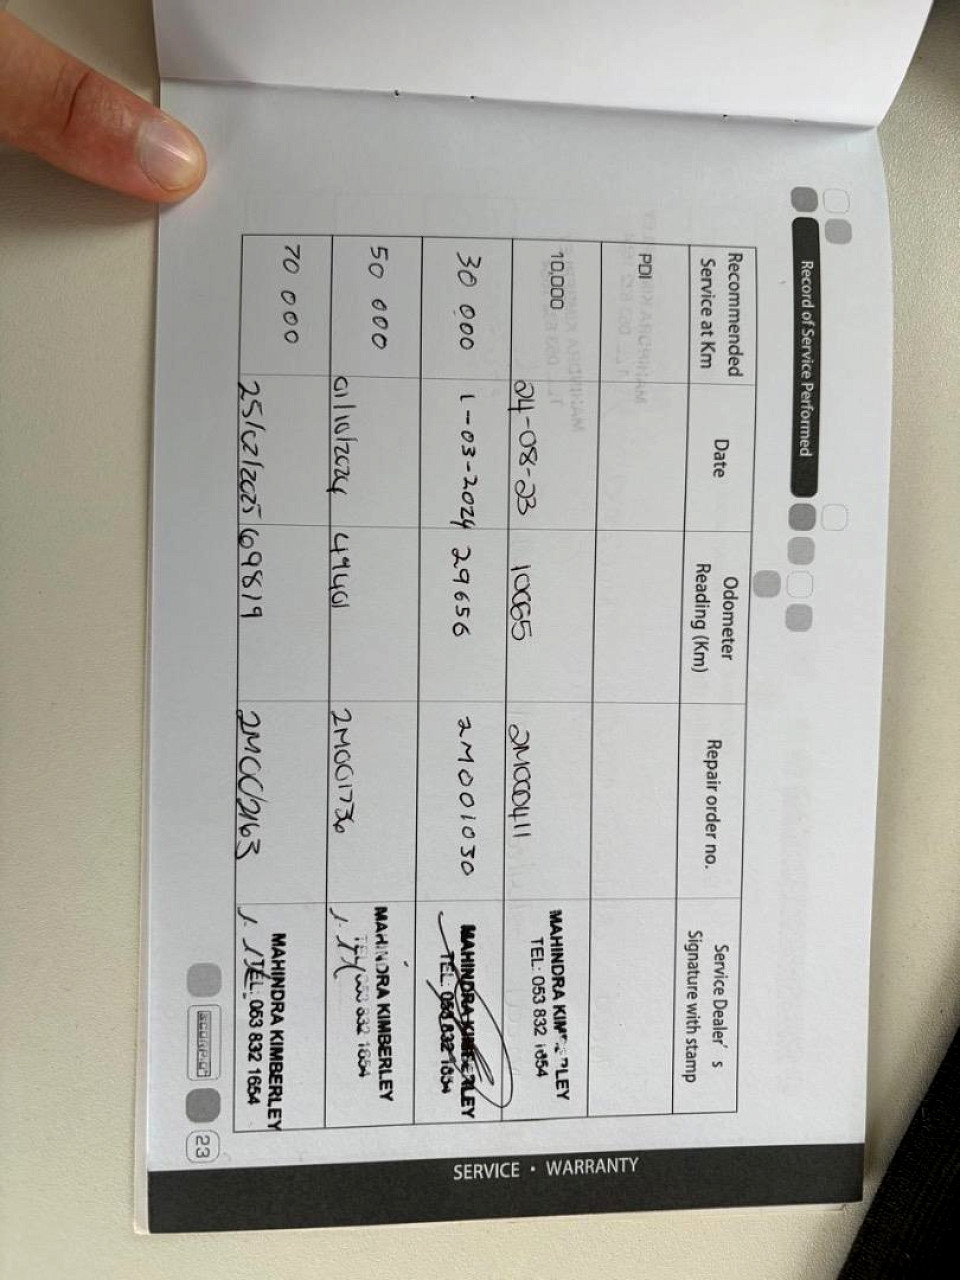 Record of Service Performed
Recommended Service at Km Date Odometer Reading (Km) Repair order no. Service Dealer's Signature with stamp
PDI
10,000 24-08-23 10065 2M000411 MAHINDRA TEL: 053 832 1654
30 000 1-03-2024 29656 2M001030 MAHINDRA KIMBERLEY TEL: 053 832 1654
50 000 01/10/2024 49401 2M001736 MAHINDRA KIMBERLEY TEL: 053 832 1654
70 000 25/02/2025 69819 MAHINDRA KIMBERLEY TEL: 053 832 1654
SCORPIO
23
SERVICE • WARRANTY